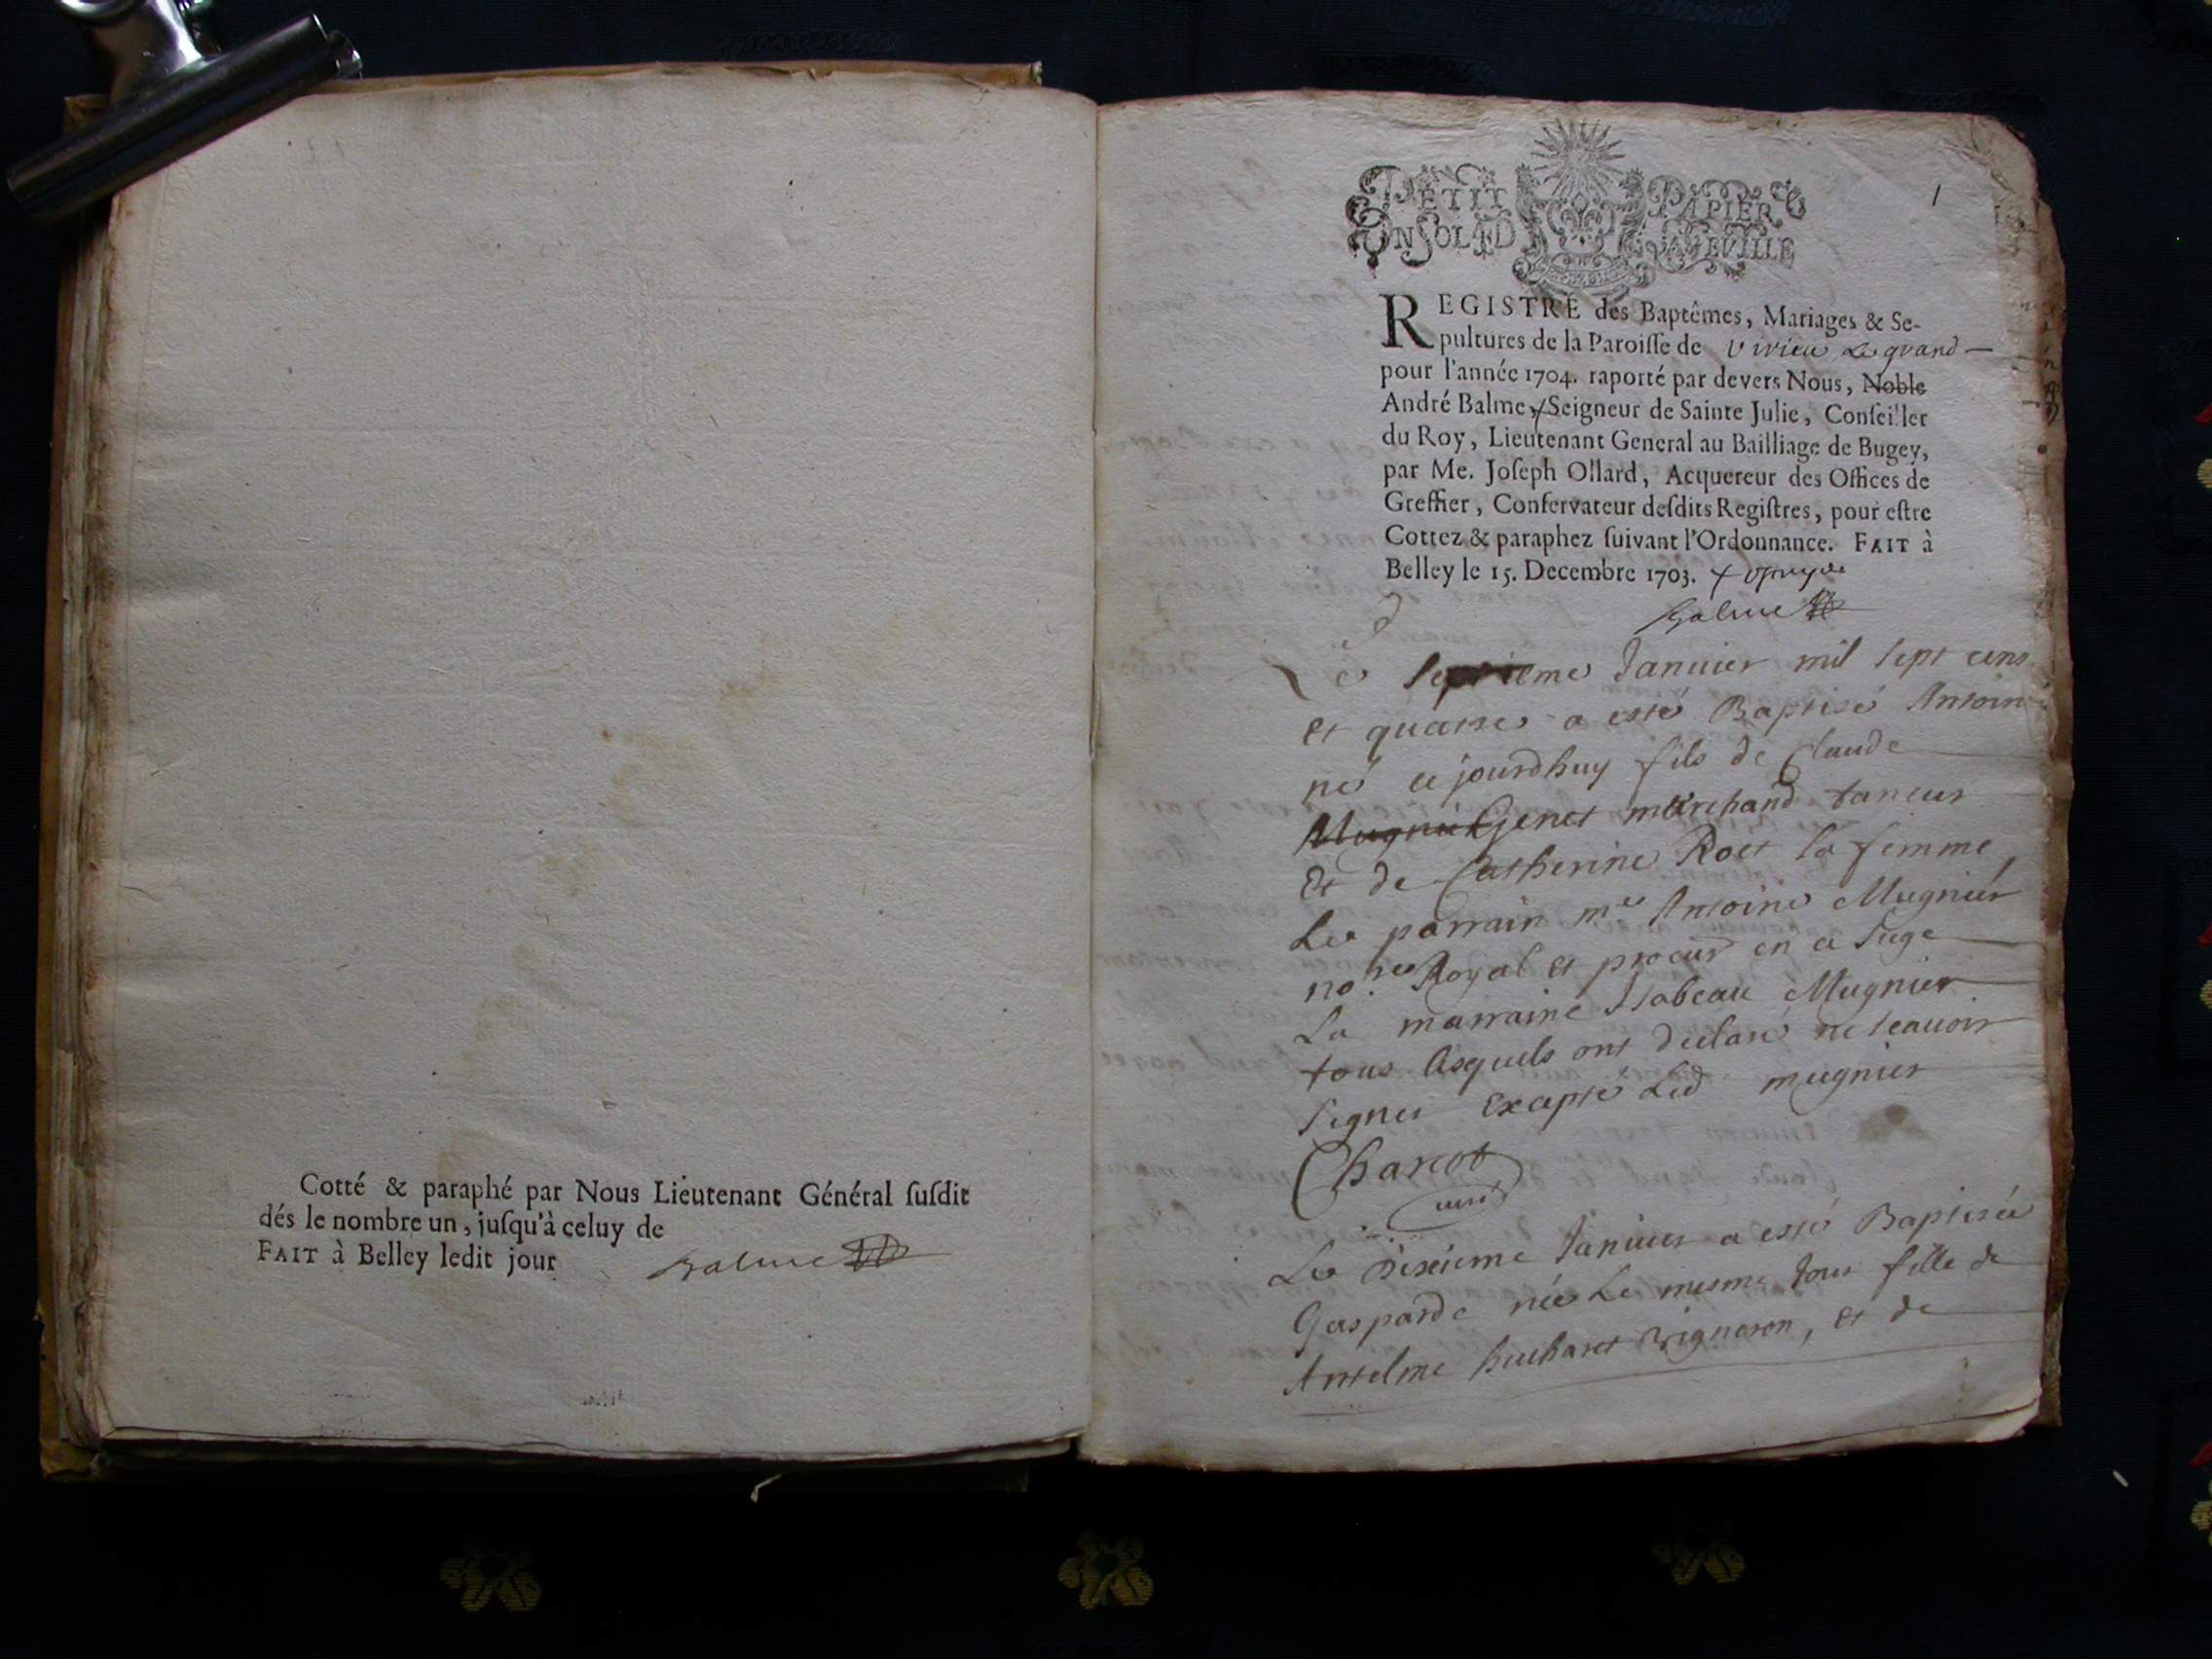 Cotté & paraphé par Nous Lieutenant Général ſuſdit
dés le nombre un, juſqu'à celuy de
FAIT à Belley ledit jour Balme
1
PETIT PAPIER
UN SOL 4D LA FEUILLE
REGISTRE des Baptêmes, Mariages & Se-
pultures de la Paroiſſe de Virieu Le grand
pour l'année 1704. raporté par devers Nous, Noble
André Balme, Seigneur de Sainte Julie, Conſeiller
du Roy, Lieutenant General au Bailliage de Bugey,
par Me. Joſeph Ollard, Acquereur des Offices de
Greffier, Conſervateur deſdits Regiſtres, pour eſtre
Cottez & paraphez ſuivant l'Ordonnance. FAIT à
Belley le 15. Decembre 1703.
Balme
Le septieme Januier mil sept cens
et quatre a esté Baptisé Antoine
né ce jourdhuy fils de Claude
Mugnier Genet marchand taneur
Et de Catherine Roet sa femme
Le parrain me Antoine Mugnier
nore Royal et procur en ce siege
La marraine Isabeau Mugnier
tous lesquels ont declaré ne scauoir
signer excepté Led mugnier
Charcot
curé
Le dixieme Januier a esté Baptisée
Gasparde née Le mesme Jour fille de
Antelme hucharet vigneron, et de